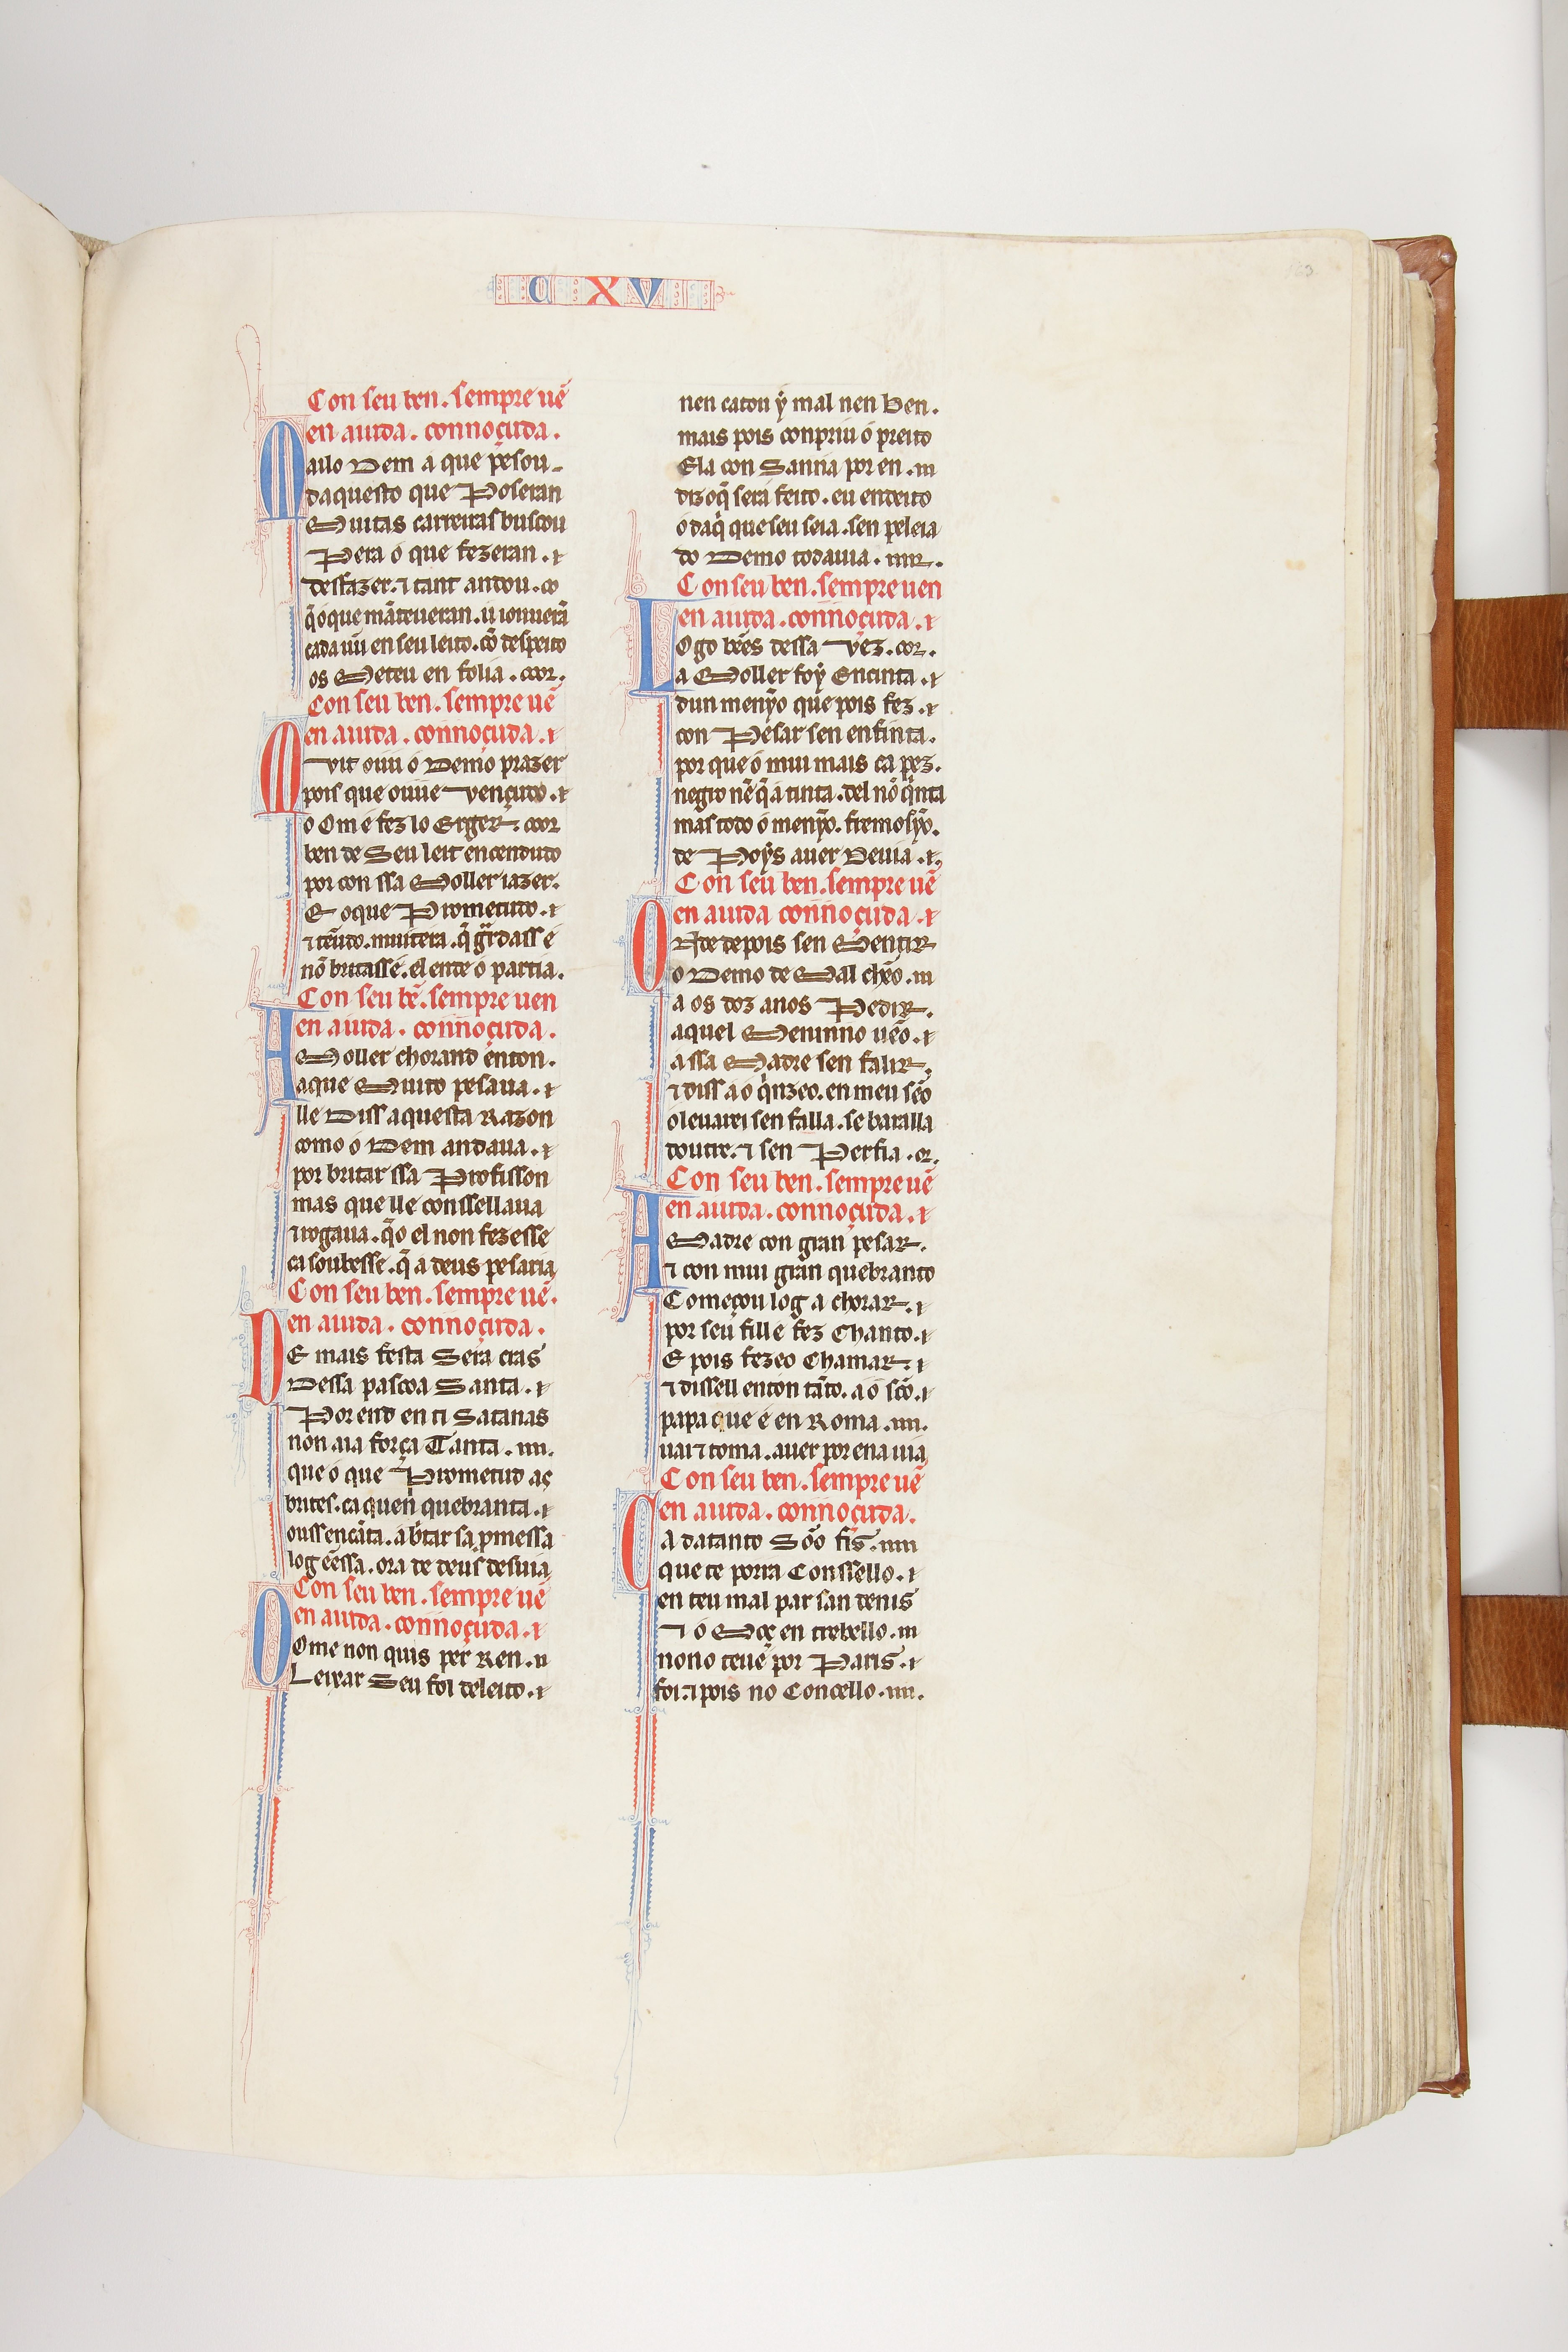 CXV
163
Con seu ben. sempre uẽ
en aiuda. connoçuda.
Mailo Dem a que pesou
daquesto que Poseran
Muitas carreiras buscou
Pera o que fezeran.
desfazer. ⁊ tant andou. co
q̃ o que mãteueran. u iouuerã
cada uũ en seu leito. cõ despeito
os Meteu en folia.
Con seu ben. sempre uẽ
en aiuda. connoçuda.
Muit ouu o Demo prazer
pois que ouue vençudo.
o Om e fez lo Erger
ben de Seu leit encendudo
por con ssa Moller iazer.
E o que Prometudo.
⁊ tẽudo. muit era. q̃ guardass e
nõ britasse. el ende o partia.
Con seu bẽ. sempre uen
en aiuda. connoçuda.
A Moller chorand enton.
a que Muito pesaua.
lle Diss aquesta Razon
como o Dem andaua.
por britar ssa Profisson
mas que lle conssellaua
⁊ rogaua. q̃ o el non fezesse
ca soubesse. q̃ a deus pesaria
Con seu ben. sempre uẽ.
en aiuda. connoçuda.
DE mais festa Sera cras
Dessa pascoa Santa.
Por end en ti Satanas
non aia força Tanta.
que o que Prometud as
brites. ca quen quebranta.
ou ss encãta. a britar sa promessa
log ẽ essa. ora de deus desuia
Con seu ben. sempre uẽ
en aiuda. connoçuda.
O Ome non quis per Ren.
Leixar Seu fol deleito.
nen catou ỹ mal nen Ben.
mais pois conpriu o preito
Ela con Sanna por en.
diz o q̃ sera feito. eu endeito
o daq̃ que seu seia. sen peleia
do Demo todauia.
Con seu ben. sempre uen
en aiuda. connoçuda.
LOgo bẽes dessa vez.
a Moller foy Encinta.
dun menỹo que pois fez.
con Pesar sen enfinta.
por que o mui mais ca pez.
negro nẽ q̃ a tinta. del nõ quinta
mas todo o menỹo. fremosỹo.
de Poỹs auer Deuia.
Con seu ben. sempre uẽ
en aiuda connoçuda.
ONde depois sen Mentir
o Demo de Mal chẽo.
a os doz anos Pedir.
aquel Meninno uẽo.
a ssa Madre sen falir.
⁊ diss a o quinzeo. en meu sẽo
o leuarei sen falla. se baralla
doutre. ⁊ sen Perfia.
Con seu ben. sempre uẽ
en aiuda. connoçuda.
A Madre con gran pesar.
⁊ con mui gran quebranto
Começou log a chorar.
por seu fill e fez Chanto.
E pois fezeo Chamar.
⁊ dissell enton tãto. a o scõ.
papa que é en Roma.
uai ⁊ toma. auer por en a uia
Con seu ben. sempre uẽ
en aiuda. connoçuda.
Ca datanto Sõo fis.
que te porra Conssello.
en teu mal par san denis
⁊ o Moç en trebello.
nono teue por Paris.
foi. ⁊ pois no Concello.